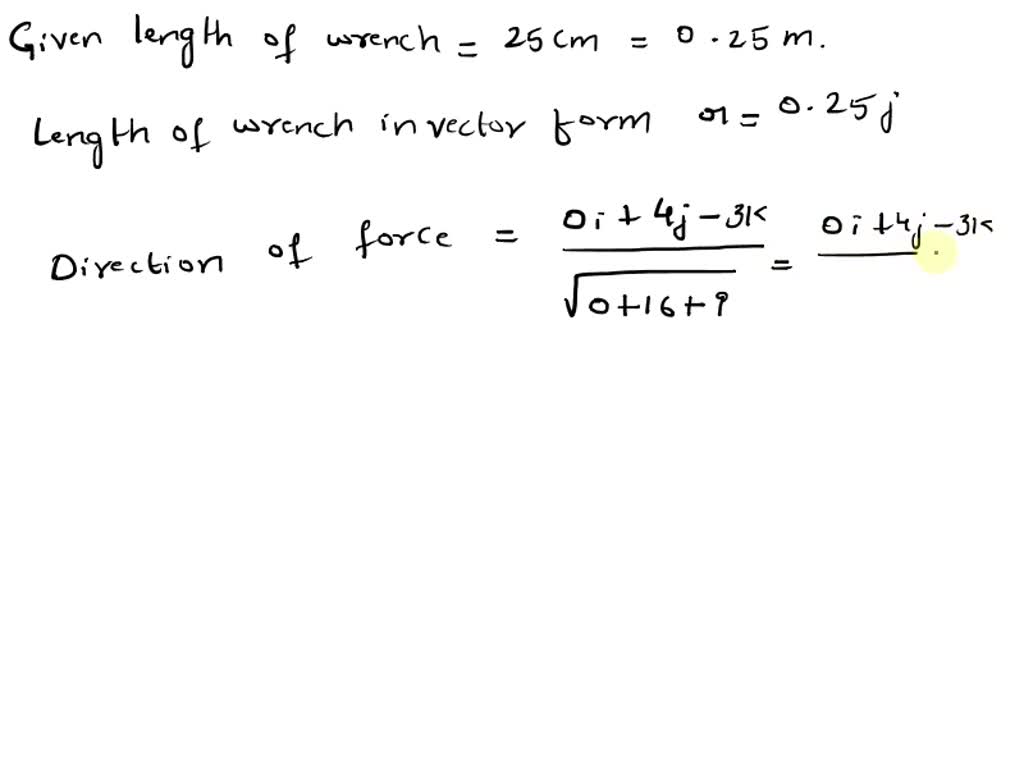 Given length of wrench = 25 cm = 0.25 m.
Length of wrench in vector form r = 0.25 j
Direction of force = (0i + 4j - 3k) / √(0+16+9) = 0i + 4j - 3k